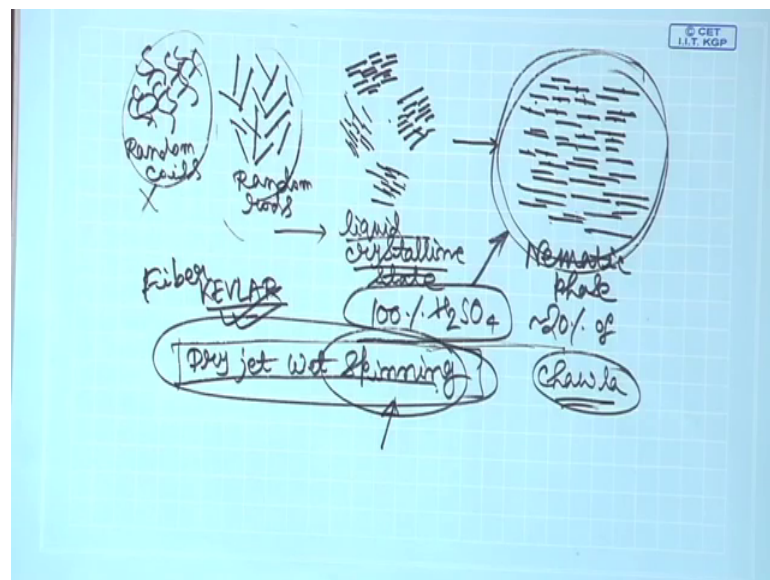 © CET
I.I.T. KGP
Random
coils
X
Random
rods
liquid
crystalline
state
Nematic
phase
~20% of
Fiber KEVLAR
100% H2SO4
Dry jet wet Spinning
Chawla